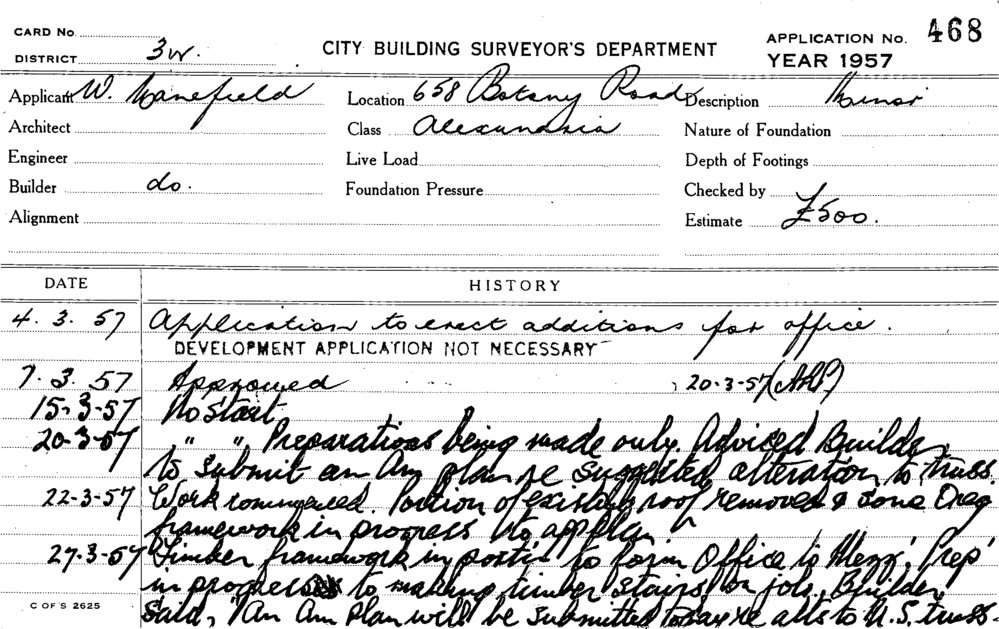 CARD No.
DISTRICT 3W.
CITY BUILDING SURVEYOR'S DEPARTMENT
APPLICATION No. 468
YEAR 1957
Applicant W. Manefield Location 658 Botany Road Description Minor
Architect Class Alexandria Nature of Foundation
Engineer Live Load Depth of Footings
Builder do. Foundation Pressure Checked by
Alignment Estimate £500.
DATE HISTORY
4. 3. 57 Application to erect additions for office.
DEVELOPMENT APPLICATION NOT NECESSARY
7. 3. 57 Approved 20-3-57
15-3-57 No Start
20-3-57 " " Preparations being made only. Adviced Builder
to submit an Am plan re suggested alteration to truss.
22-3-57 Work commenced. Portion of existing roof removed &
framework in progress to app plan
27-3-57 Timber framework in to form Office to Mezz' Prep'
in progress to making timber stairs on job. Builder
said, "An Am Plan will be submitted today re alts to truss.
C OF S 2625